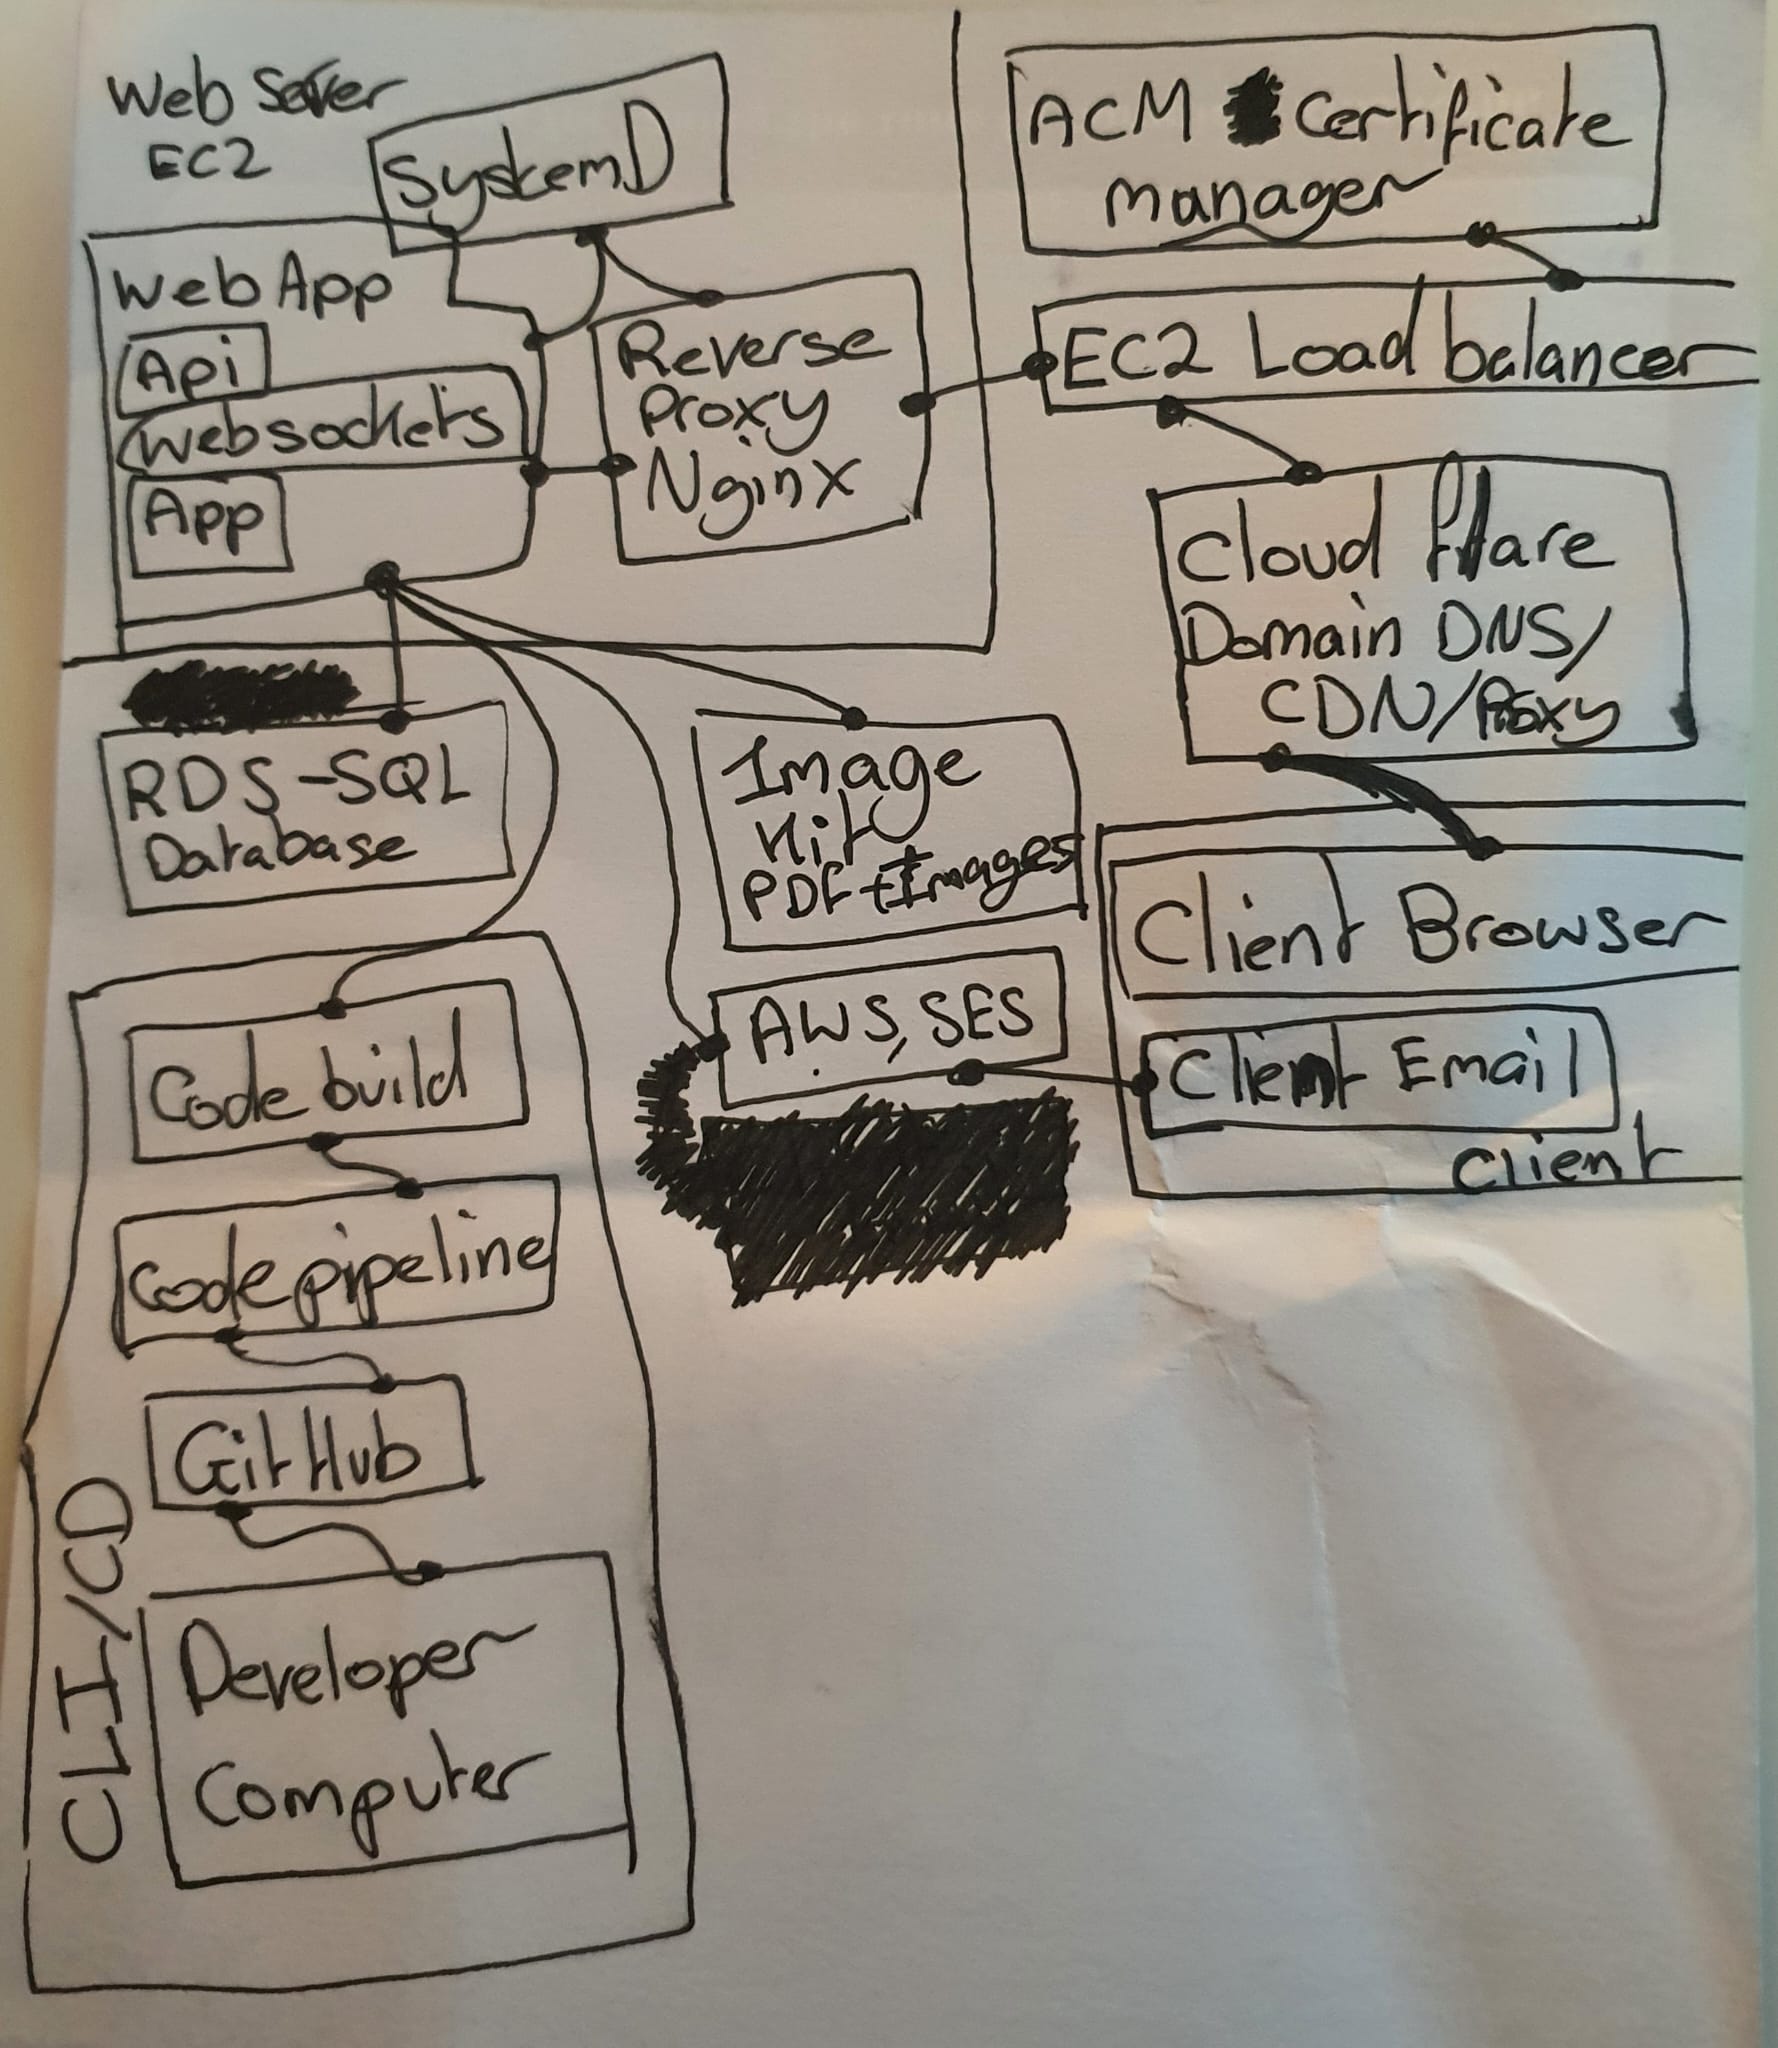 Web Server
EC2
SystemD
Web App
Api
Websockets
App
Reverse
Proxy
Nginx
ACM Certificate
manager
EC2 Load balancer
Cloud flare
Domain DNS/
CDN/Proxy
RDS-SQL
Database
Image
Kit
PDF+Images
AWS, SES
Client Browser
Client Email
Client
Code build
Code pipeline
GitHub
Developer
Computer
CLI/CD